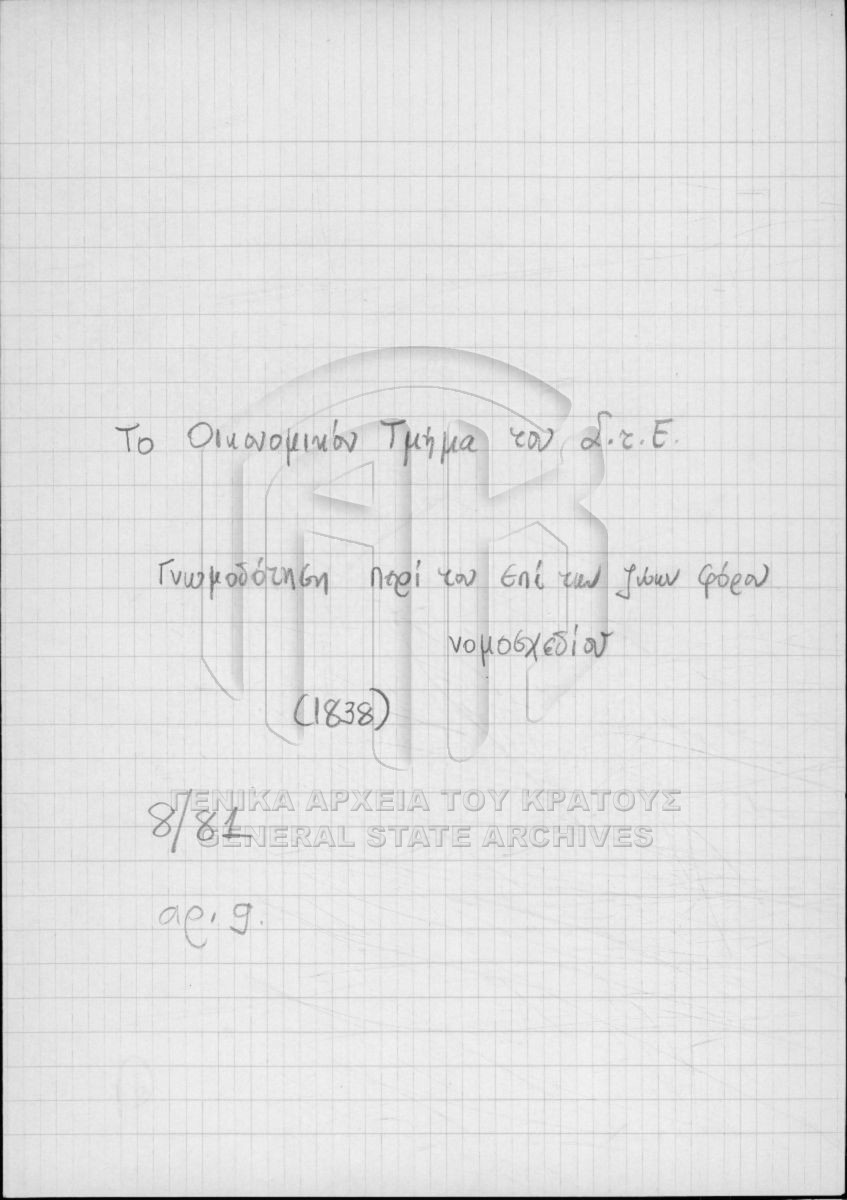 Το Οικονομικόν Τμήμα του Σ.τ.Ε.
Γνωμοδότηση περί του επί των ζώων φόρου
νομοσχεδίου
(1838)
ΓΕΝΙΚΑ ΑΡΧΕΙΑ ΤΟΥ ΚΡΑΤΟΥΣ
8/81
GENERAL STATE ARCHIVES
αρ. 9.